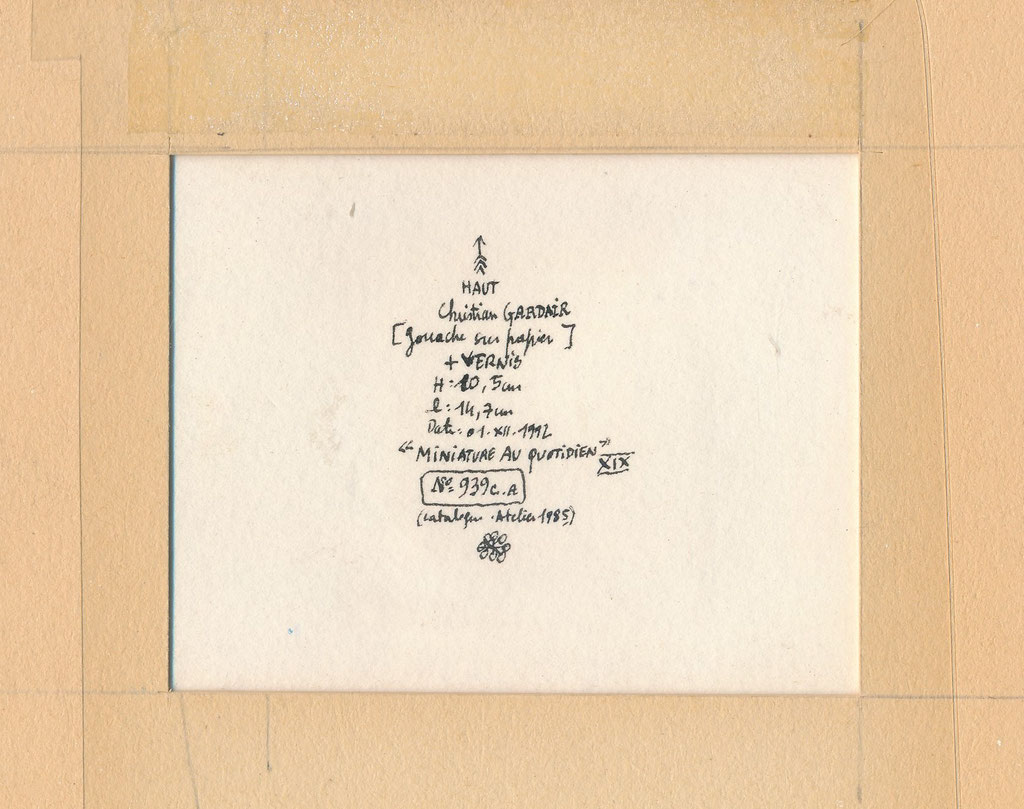 HAUT
Christian GARDAIR
[gouache sur papier]
+ VERNIS
H: 10,5cm
l: 14,7cm
Date: 01.XII.1992
"MINIATURE AU QUOTIDIEN" XIX
Nº 939c.A
(catalogue Atelier 1985)